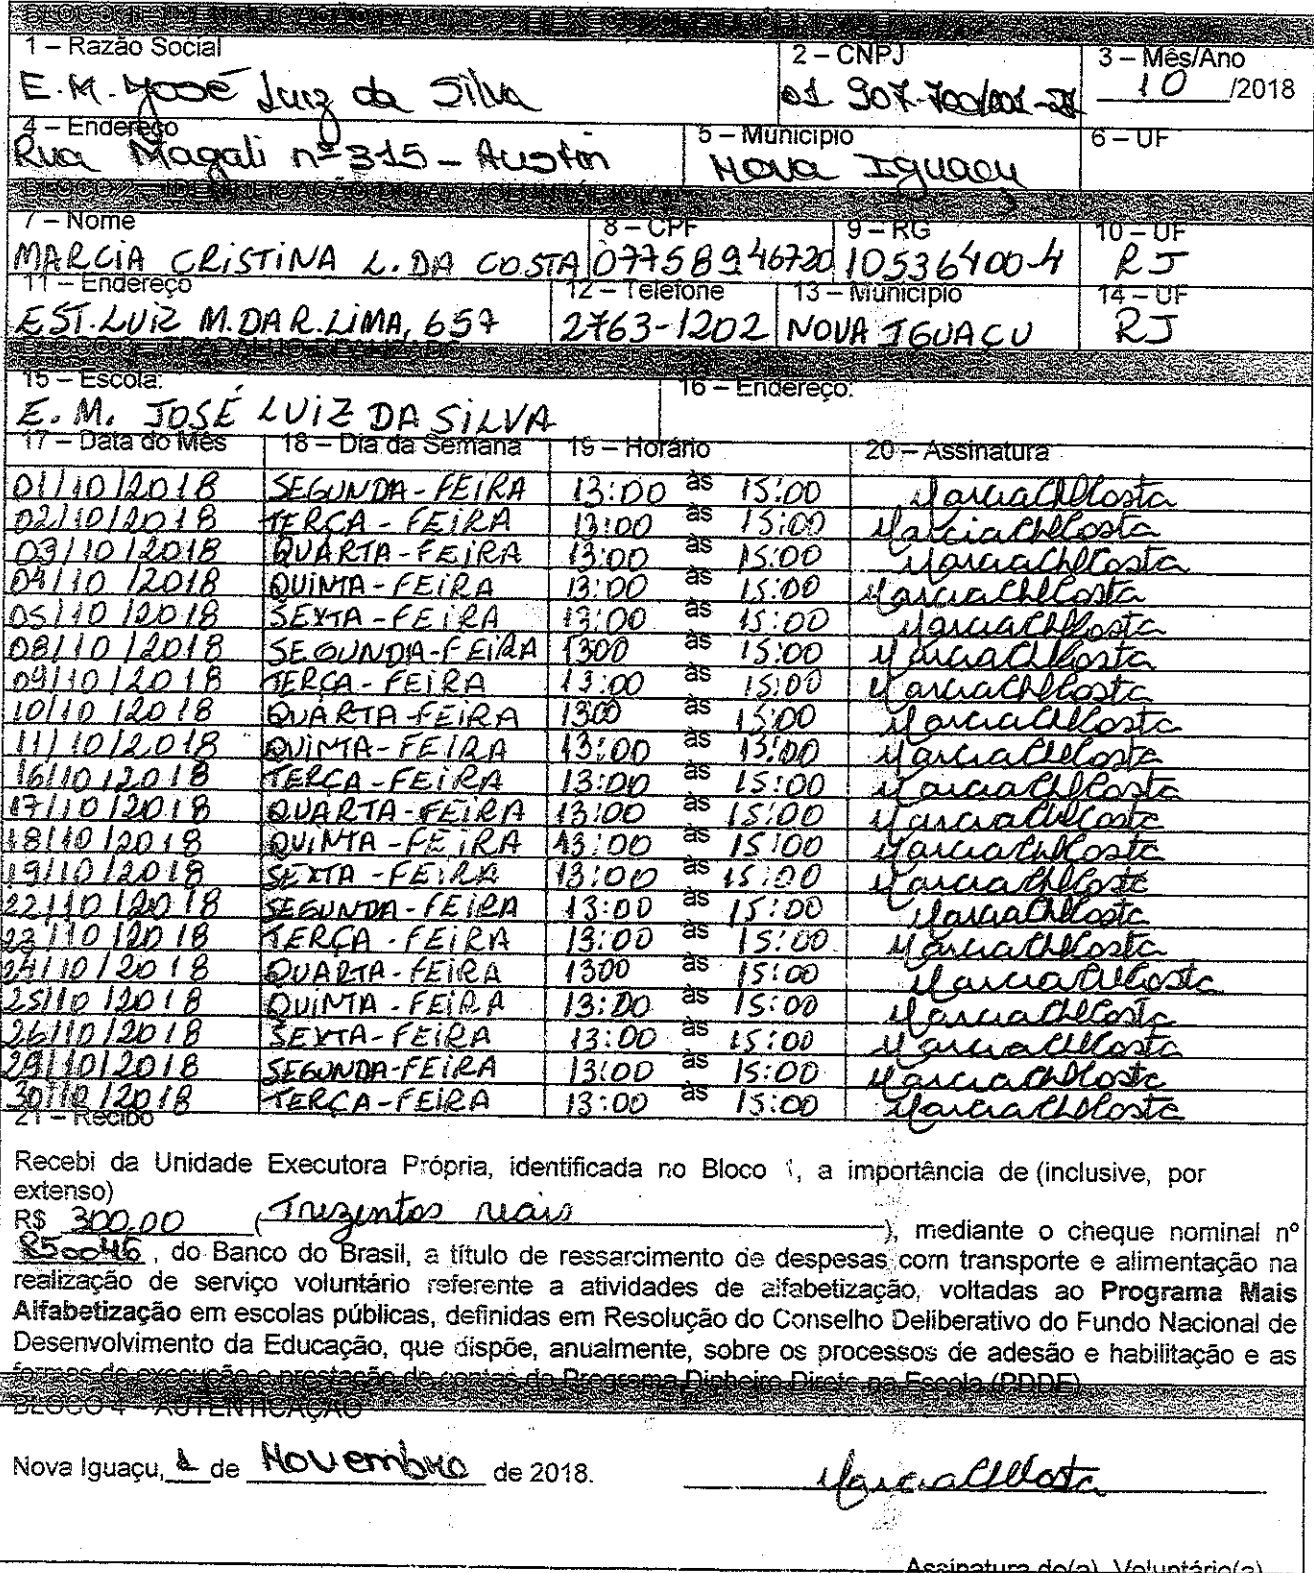 1 – Razão Social
2 – CNPJ
3 – Mês/Ano
E.M. José Luiz da Silva
10 /2018
4 – Endereço
5 – Município
6 – UF
Rua Magali nº 315 – Austin
Nova Iguaçu
7 – Nome
8 – CPF
9 – RG
10 – UF
MARCIA CRISTINA L. DA COSTA
07758946720
10536400-4
RJ
11 – Endereço
12 – Telefone
13 – Município
14 – UF
EST. LUIZ M. DA R. LIMA, 657
2763-1202
NOVA IGUAÇU
RJ
15 – Escola:
16 – Endereço:
E. M. JOSÉ LUIZ DA SILVA
17 – Data do Mês
18 – Dia da Semana
19 – Horário
20 – Assinatura
01/10/2018 SEGUNDA-FEIRA 13:00 às 15:00 MarciaCLCosta
02/10/2018 TERÇA-FEIRA 13:00 às 15:00 MarciaCLCosta
03/10/2018 QUARTA-FEIRA 13:00 às 15:00 MarciaCLCosta
04/10/2018 QUINTA-FEIRA 13:00 às 15:00 MarciaCLCosta
05/10/2018 SEXTA-FEIRA 13:00 às 15:00 MarciaCLCosta
08/10/2018 SEGUNDA-FEIRA 1300 às 15:00 MarciaCLCosta
09/10/2018 TERÇA-FEIRA 13:00 às 15:00 MarciaCLCosta
10/10/2018 QUARTA-FEIRA 1300 às 15:00 MarciaCLCosta
11/10/2018 QUINTA-FEIRA 13:00 às 15:00 MarciaCLCosta
16/10/2018 TERÇA-FEIRA 13:00 às 15:00 MarciaCLCosta
17/10/2018 QUARTA-FEIRA 13:00 às 15:00 MarciaCLCosta
18/10/2018 QUINTA-FEIRA 13:00 às 15:00 MarciaCLCosta
19/10/2018 SEXTA-FEIRA 13:00 às 15:00 MarciaCLCosta
22/10/2018 SEGUNDA-FEIRA 13:00 às 15:00 MarciaCLCosta
23/10/2018 TERÇA-FEIRA 13:00 às 15:00 MarciaCLCosta
24/10/2018 QUARTA-FEIRA 1300 às 15:00 MarciaCLCosta
25/10/2018 QUINTA-FEIRA 13:00 às 15:00 MarciaCLCosta
26/10/2018 SEXTA-FEIRA 13:00 às 15:00 MarciaCLCosta
29/10/2018 SEGUNDA-FEIRA 13:00 às 15:00 MarciaCLCosta
30/10/2018 TERÇA-FEIRA 13:00 às 15:00 MarciaCLCosta
21 – Recibo
Recebi da Unidade Executora Própria, identificada no Bloco 1, a importância de (inclusive, por
extenso)
R$ 300,00 (Trezentos reais), mediante o cheque nominal nº
850046, do Banco do Brasil, a título de ressarcimento de despesas com transporte e alimentação na
realização de serviço voluntário referente a atividades de alfabetização, voltadas ao Programa Mais
Alfabetização em escolas públicas, definidas em Resolução do Conselho Deliberativo do Fundo Nacional de
Desenvolvimento da Educação, que dispõe, anualmente, sobre os processos de adesão e habilitação e as
formas de execução e prestação de contas do Programa Dinheiro Direto na Escola (PDDE)
BLOCO 4 – AUTENTICAÇÃO
Nova Iguaçu, de Novembro de 2018.
MarciaCLCosta
Assinatura do(a) Voluntário(a)